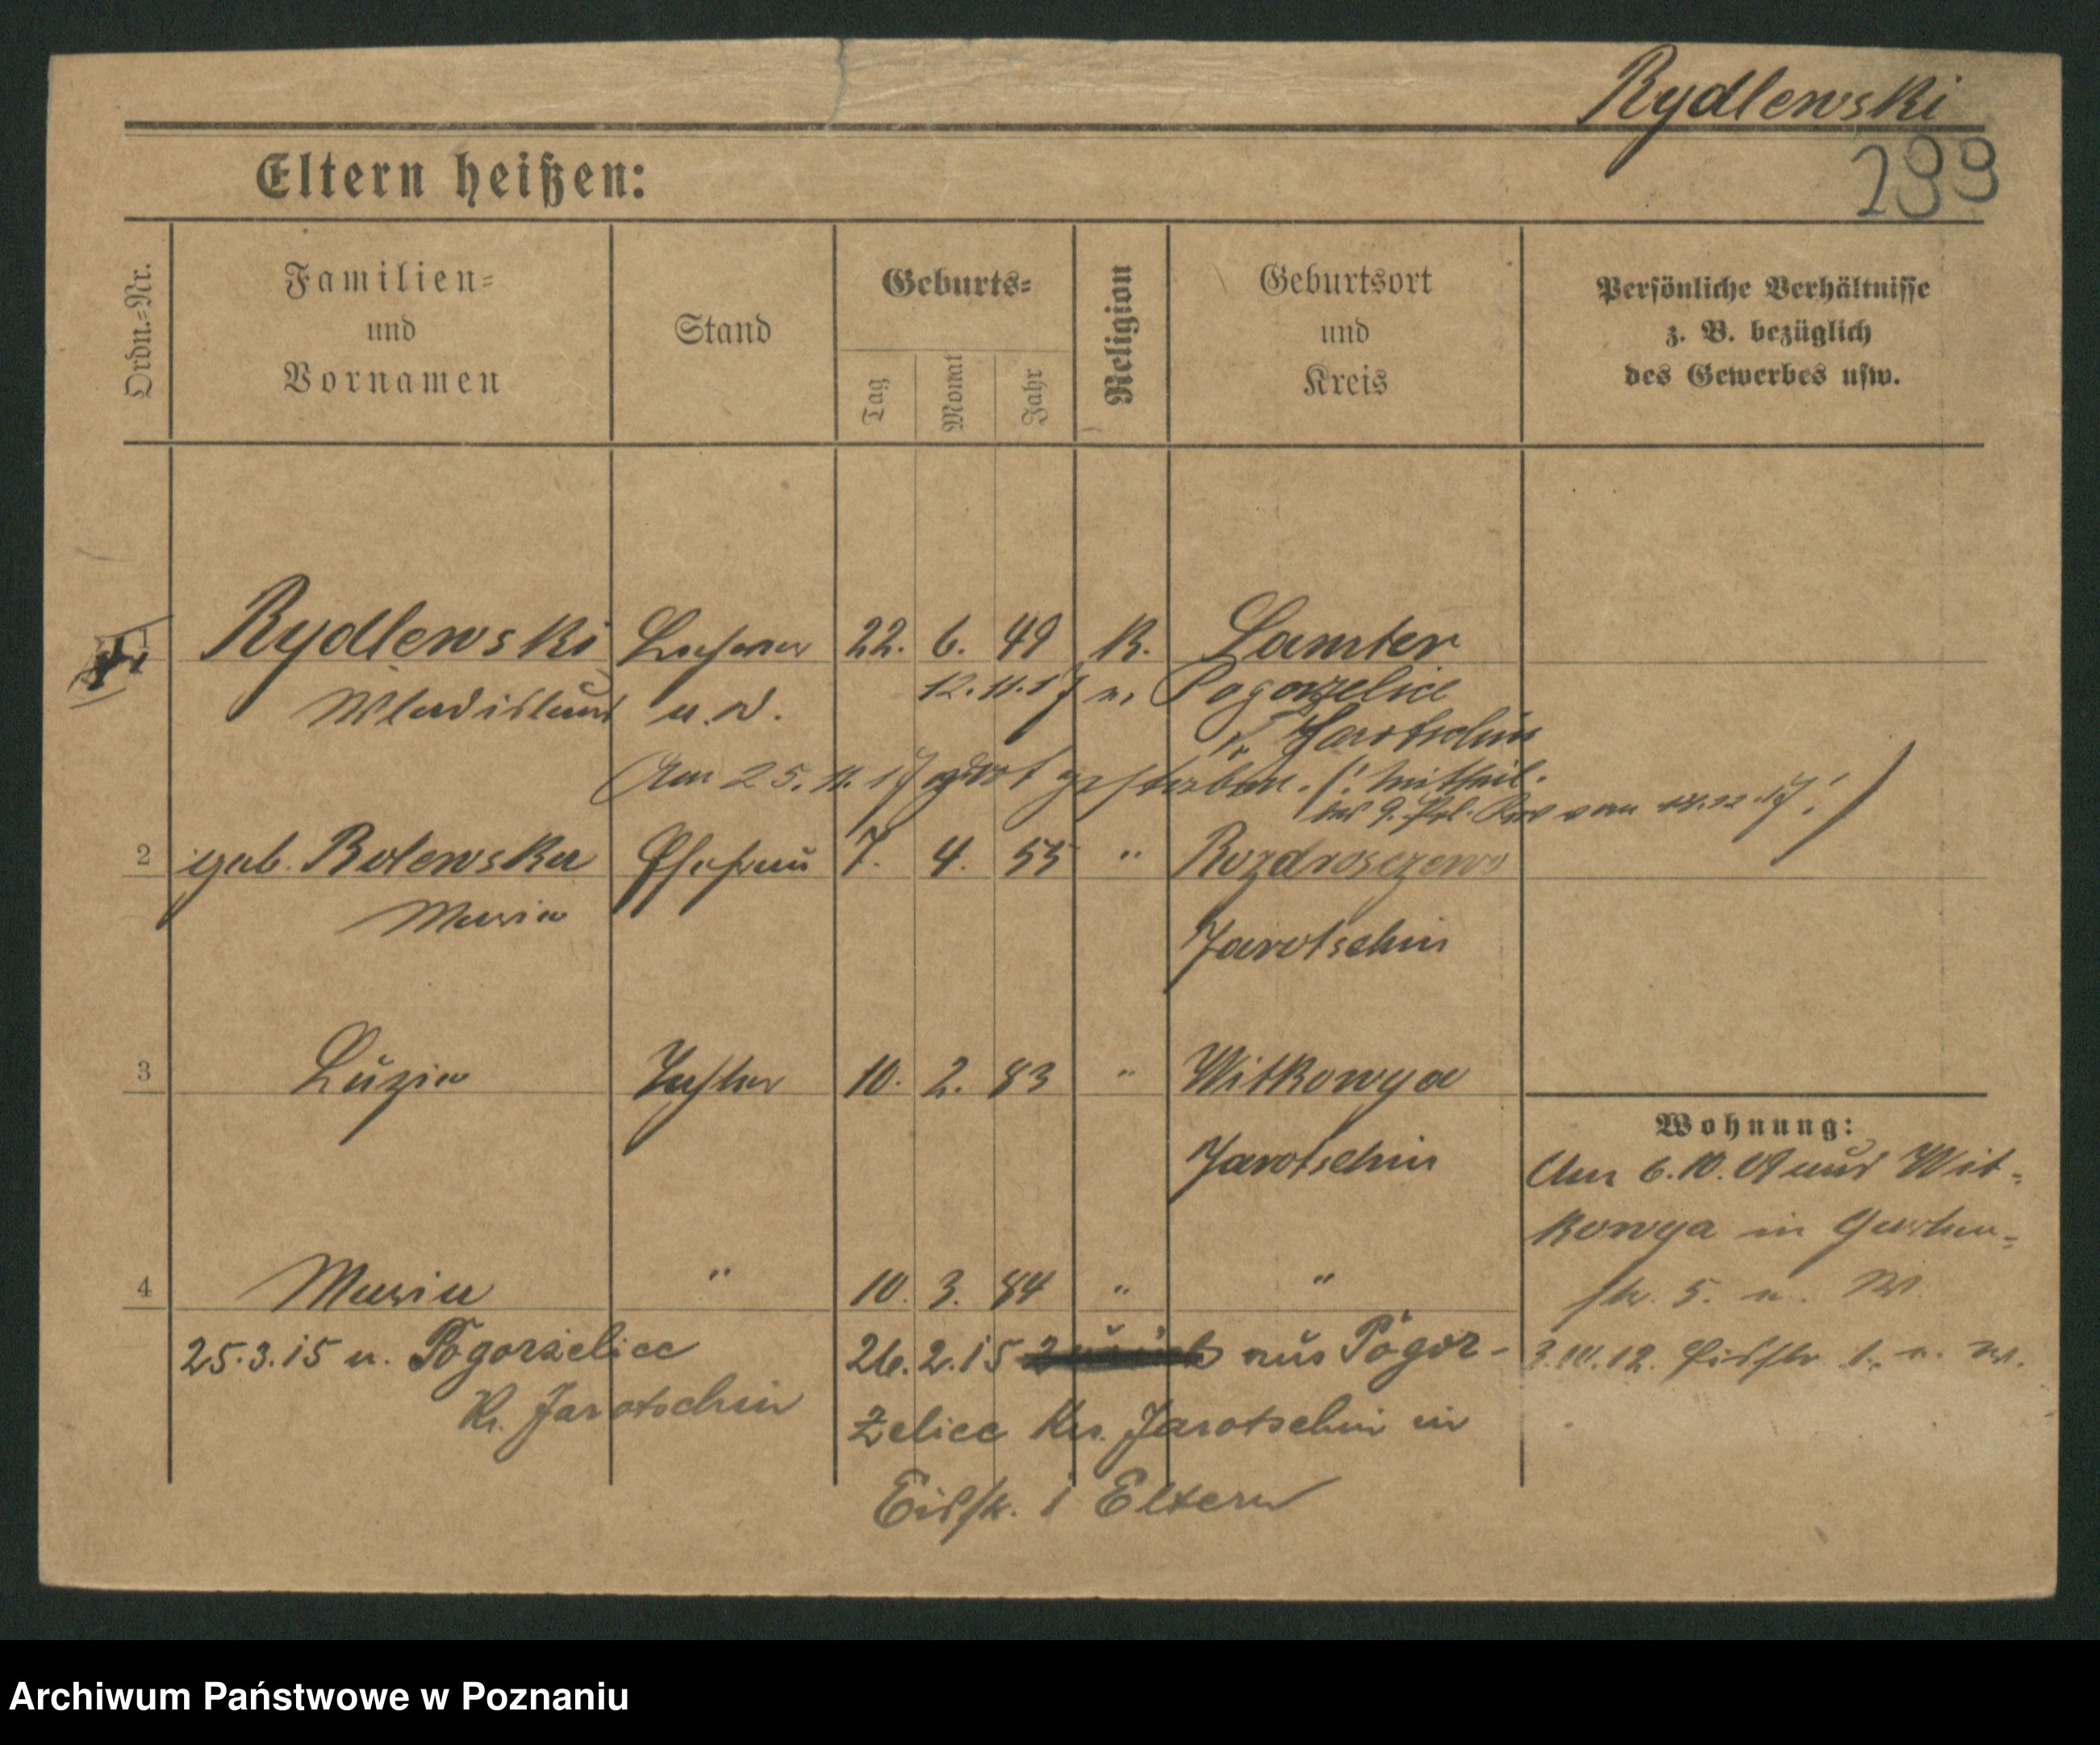 Rydlewski
299
Eltern heißen:
Ordn.-Nr.
Familien- und Vornamen
Stand
Geburts-
Tag
Monat
Jahr
Religion
Geburtsort und Kreis
Persönliche Verhältnisse z. B. bezüglich des Gewerbes usw.
1 Rydlewski Lehrer 22. 6. 49 K. Samter
Wladislaus a. D. 12. 11. 17 n. Pogorzelice
Kr. Jarotschin
Am 25. 11. 17 dort gestorben. (! Mitteil.
vom 12. 17!)
2 geb. Bolewska Ehefrau 7. 4. 55 " Rozdrosczewo
Maria
Jarotschin
3 Luzia Tochter 10. 2. 83 " Witkowya
Jarotschin
Wohnung:
Am 6. 10. 09 aus Wit-
kowya in Garten-
str. 5. n. W.
4 Maria " 10. 3. 84 " "
25.3.15 n. Pogorzelice
Kr. Jarotschin
26.2.15 aus Pogor-
zelice Kr. Jarotschin in
Eichstr. 1 Eltern
3.10.12. 1. n. W.
Archiwum Państwowe w Poznaniu